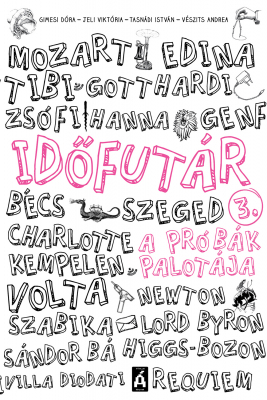 GIMESI DÓRA – JELI VIKTÓRIA – TASNÁDI ISTVÁN – VÉSZITS ANDREA
MOZART EDINA
TIBI GOTTHARDI
ZSÓFI HANNA GENF
IDŐFUTÁR
BÉCS SZEGED 3.
CHARLOTTE A PRÓBÁK
KEMPELEN PALOTÁJA
VOLTA NEWTON
SZABIKA LORD BYRON
SÁNDOR BÁ HIGGS-BOZON
VILLA DIODATI REQUIEM